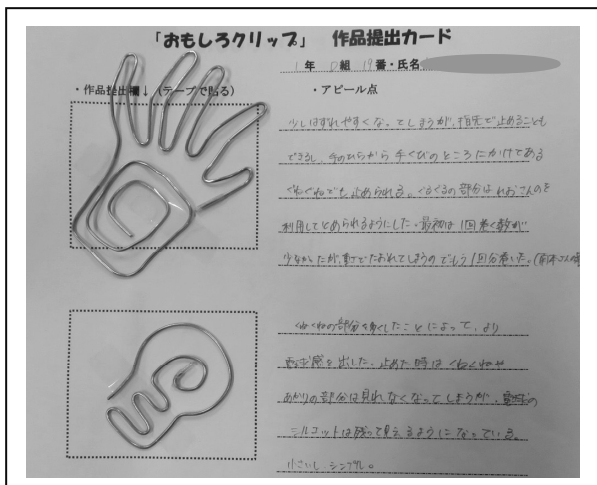 「おもしろクリップ」 作品提出カード
1年 D組 19番・氏名
・作品提出欄↓(テープで貼る)
・アピール点
少しはずれやすくなってしまうが、指先で止めることも
できるし、手のひらから手くびのところにかけてある
くねくねでも止められる。くるくるの部分は
利用してとめられるようにした。最初は1回巻く数が
少なかったが、重さでたおれてしまうのでもう1回分巻いた。
くねくねの部分を多くしたことによって、より
電球感を出した。止めた時はくねくねや
あかりの部分は見れなくなってしまうが、電球の
シルエットは残って見えるようになっている。
小さいし、シンプル。